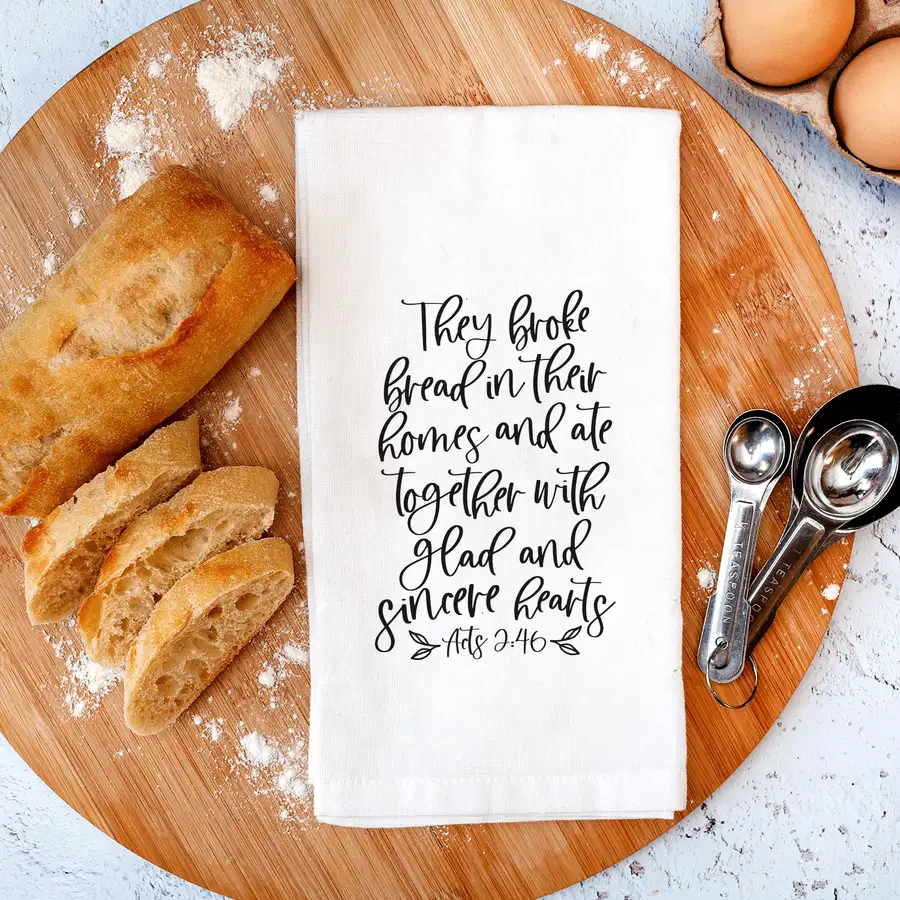 They broke
bread in their
homes and ate
together with
glad and
sincere hearts
Acts 2:46
TEASPOON
TEASPOON